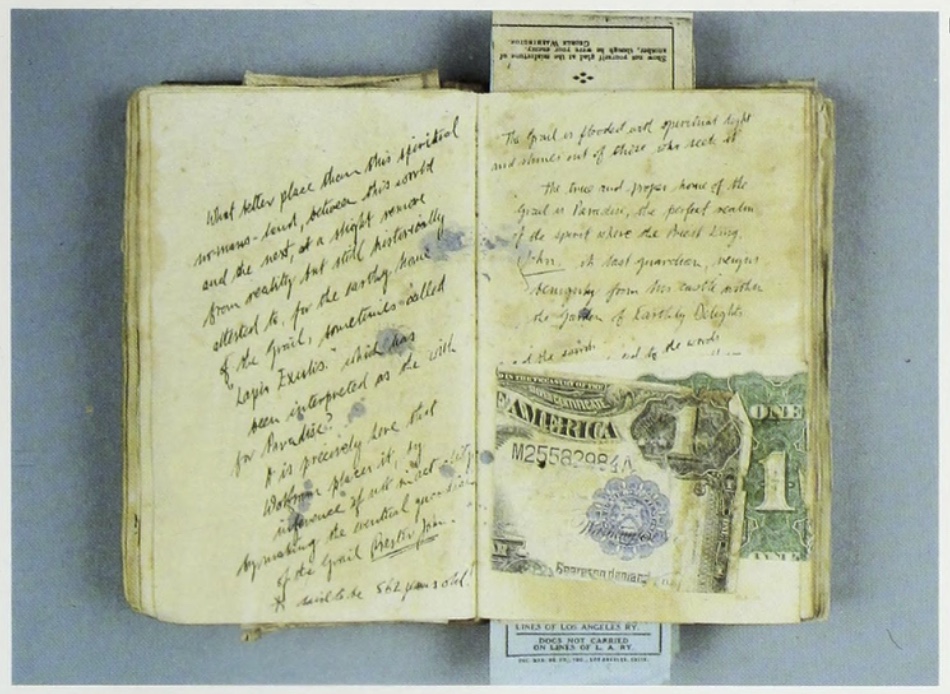 Show not yourself glad at the misfortune of
another, though he were your enemy.
George Washington.
What better place than this spiritual
no-mans-land, between this world
and the next, at a slight remove
from reality but still historically
attested to, for the earthly home
of the Grail, sometimes called
"Lapis Exulis." which has
been interpreted as the
for Paradise?
It is precisely here that
Wolfram places it, by
inference if not in actual
by making the eventual guardian
of the Grail Prester John.
* said to be 562 years old!
The Grail is flooded with spiritual light
and shines out of those who seek it
The true and proper home of the
Grail is Paradise, the perfect realm
of the spirit where the Priest King,
John, its last guardian, reigns
benignly from his castle within
the Garden of Earthly Delights
and to the words
IN THE TREASURY OF THE
SILVER CERTIFICATE
AMERICA
M25582984A
Washington
ONE
1
LINES OF LOS ANGELES RY.
DOGS NOT CARRIED
ON LINES OF L. A. RY.